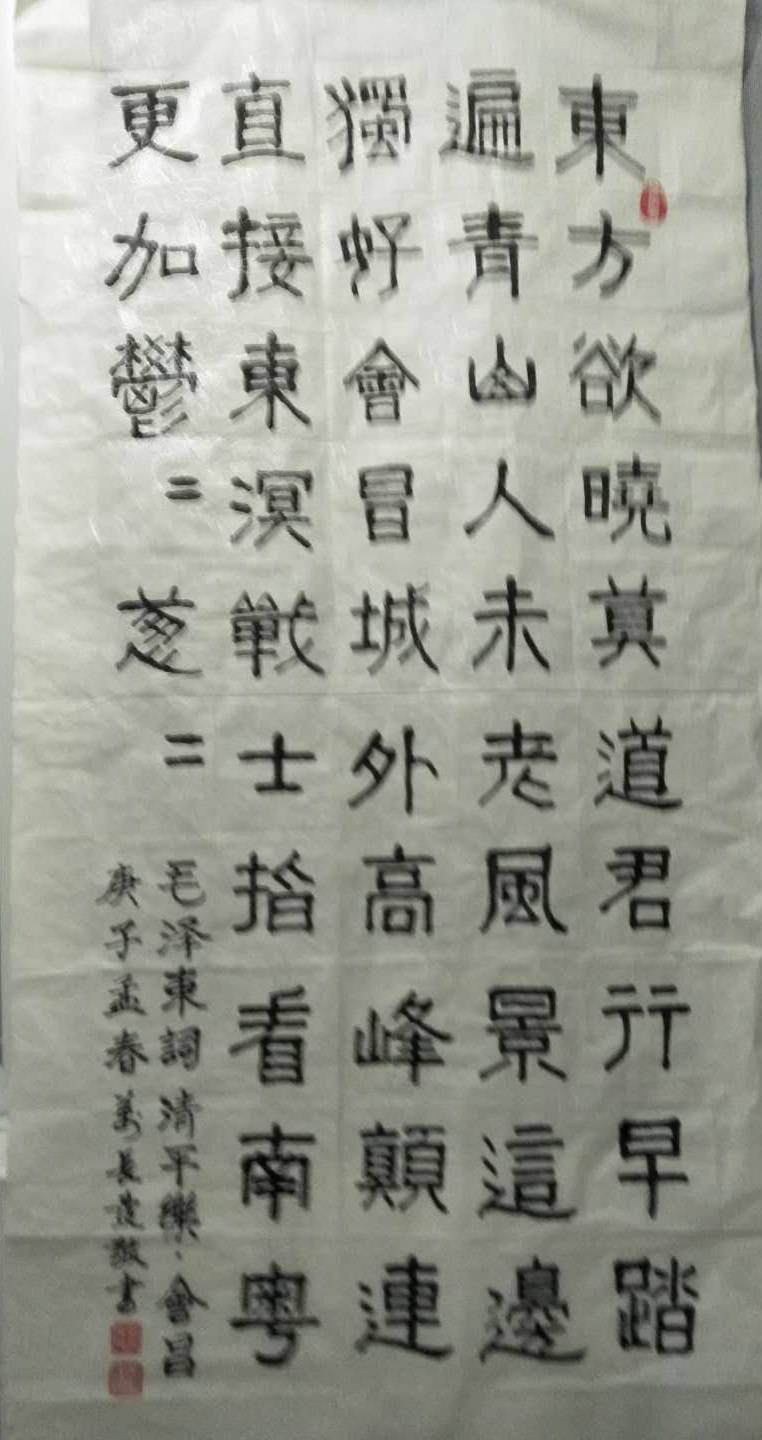 東方欲曉莫道君行早踏
遍青山人未老風景這邊
獨好會昌城外高峰顛連
直接東溟戰士指看南粵
更加鬱二葱二
毛泽東詞 清平樂·會昌
庚子孟春 萬長敬書